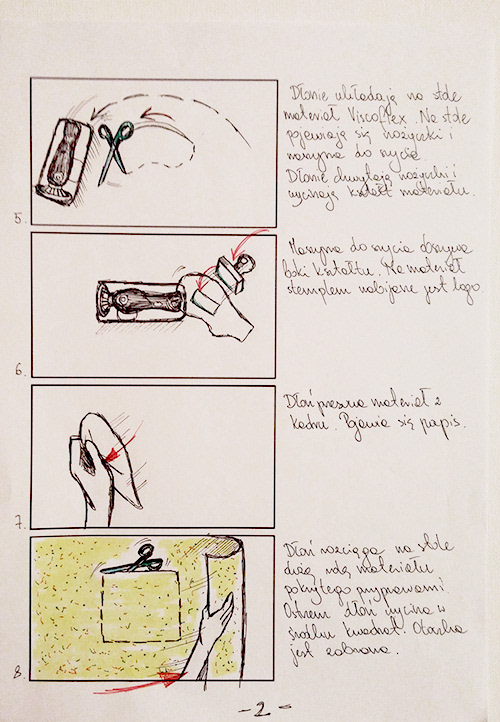 5.
Dłonie układają na stole
materiał Viscoflex. Na stole
pojawiają się nożyczki i
maszyna do szycia.
Dłonie chwytają nożyczki i
wycinają kształt materiału.
6.
Maszyna do szycia obszywa
boki kształtu. Na materiał
stemplem nabijane jest logo.
7.
Dłoń materiał z
kadru. Pojawia się papis.
8.
Dłoń rozciąga na stole
dużą rolę materiału
pokrytego przyprawami.
Ostrzem dłoń wycina w
środku kwadrat.
jest zabrana.
-2-